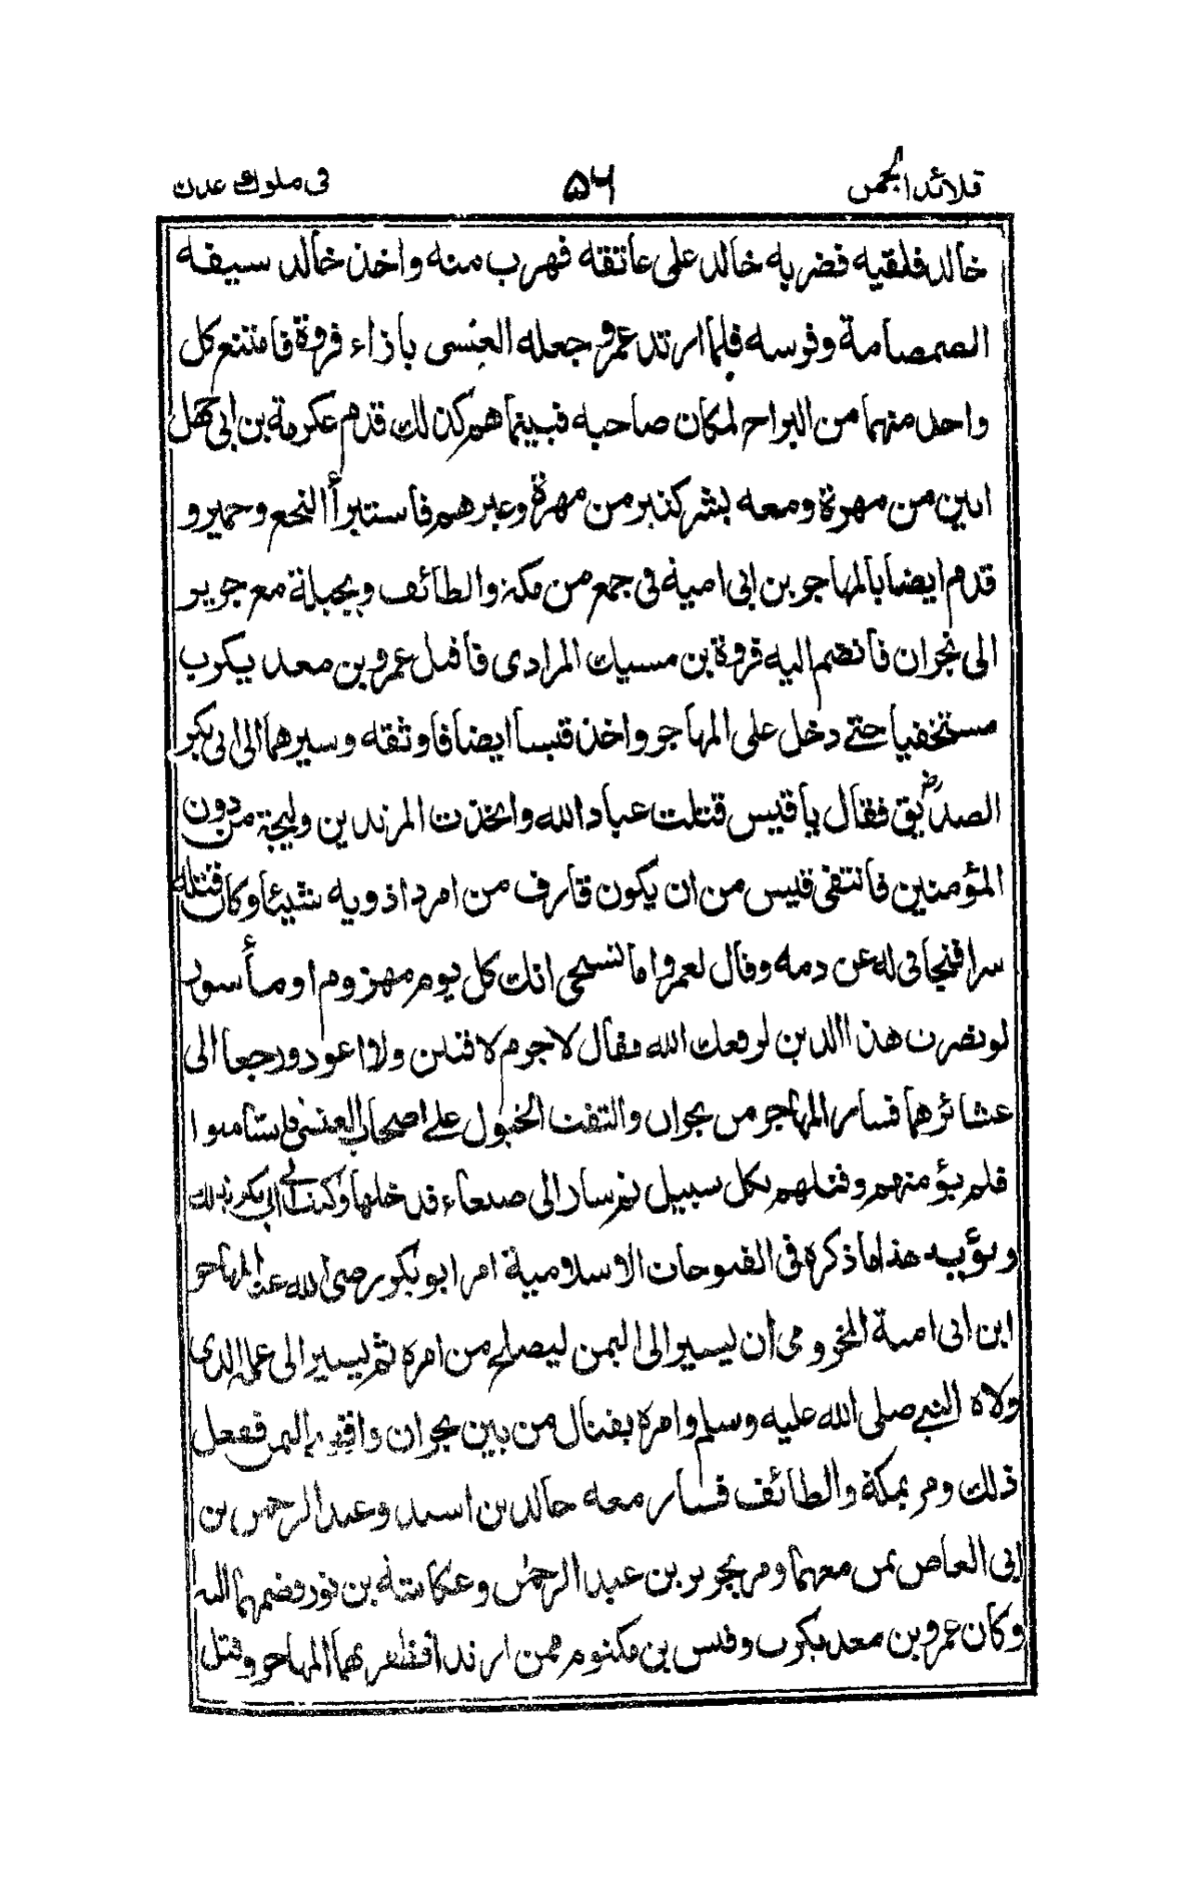 قلائد الجمن ٥٦ فى ملوك عدن
خالد فلقيه فضربه خالد على عاتقه فهرب منه واخذ خالد سيفه
الصمصامة وفرسه فلما ارتد عمرو جعله العنسى باذاء فروة فامتنع كل
واحد منهما من البراح لمكان صاحبه فبينما هم كذلك قدم عكرمة بن ابى جهل
ابين من مهرة ومعه بشر كثير من مهرة وغيرهم فاستبرأ النخع وحمير و
قدم ايضا بالمهاجر بن ابى امية فى جمع من مكة والطائف وبجيلة مع جرير
الى نجران فانضم اليه فروة بن مسيك المرادى فاقبل عمرو بن معد يكرب
مستخفيا حتى دخل على المهاجر واخذ قيسا ايضا فاوثقه وسيرهما الى ابى بكر
الصديق رض فقال يا قيس قتلت عباد الله واتخذت المرتدين وليجة من دون
المؤمنين فانتفى قيس من ان يكون قارف من امر داذويه شيئا وكان قتله
سرا فتجافى له عن دمه وقال لعمرو اما تستحى انك كل يوم مهزوم او مأسور
لو نصرت هذا الدين لرفعك الله فقال لاجرم لاقبلن ولا اعود ورجعا الى
عشائرهما فسار المهاجر من نجران والتفت الخيول على اصحاب العنسى فاستأمنوا
فلم يؤمنهم وقتلهم بكل سبيل ثم سار الى صنعاء فدخلها وكتب الى ابى بكر بذلك
ويؤيد هذا ما ذكره فى الفتوحات الاسلامية امر ابو بكر رضى الله عنه المهاجر
ابن ابى امية المخزومى ان يسير الى اليمن ليصلح من امره ثم يسير الى عمله الذى
ولاه النبى صلى الله عليه وسلم وامره بقتال من بين نجران واقصى اليمن ففعل
ذلك ومر بمكة والطائف فسار معه خالد بن اسيد وعبد الرحمن بن
ابى العاص بمن معهما ومر بجرير بن عبد الرحمن وعكاشة بن ثور وضمهما اليه
وكان عمرو بن معد يكرب وقيس بن مكتوم ممن ارتد افظفر بهما المهاجر وقتل